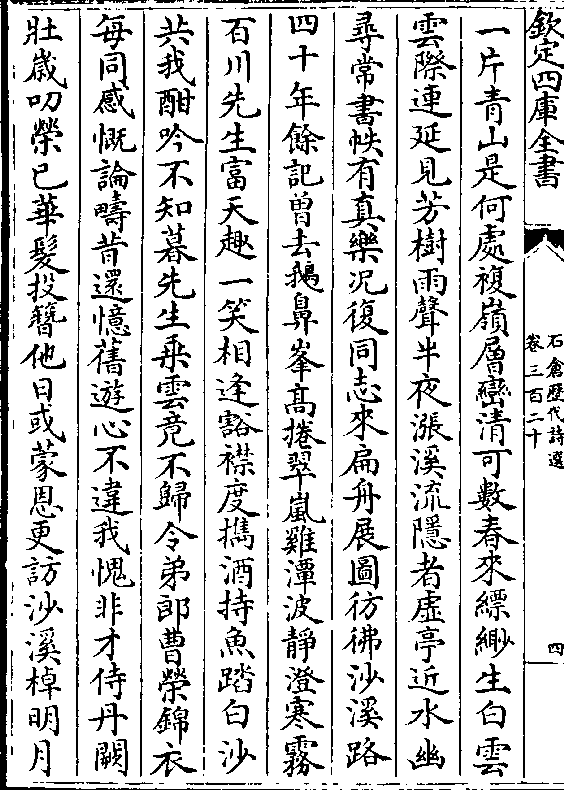 欽定四庫全書
石倉歷代詩選
卷三百二十
四
一片青山是何處複嶺層巒清可數春來縹緲生白雲
雲際連延見芳樹雨聲半夜漲溪流隱者虛亭近水幽
尋常書帙有真樂況復同志來扁舟展圖彷彿沙溪路
四十年餘記曽去鵝鼻峯髙捲翠嵐雞潭波靜澄寒霧
百川先生富天趣一笑相逢豁襟度擕酒持魚踏白沙
共我酣吟不知暮先生乗雲竟不歸令弟郎曹榮錦衣
每同感慨論疇昔還憶舊遊心不違我愧非才侍丹闕
壯歳叨榮已華髮投簪他日或蒙恩更訪沙溪棹明月